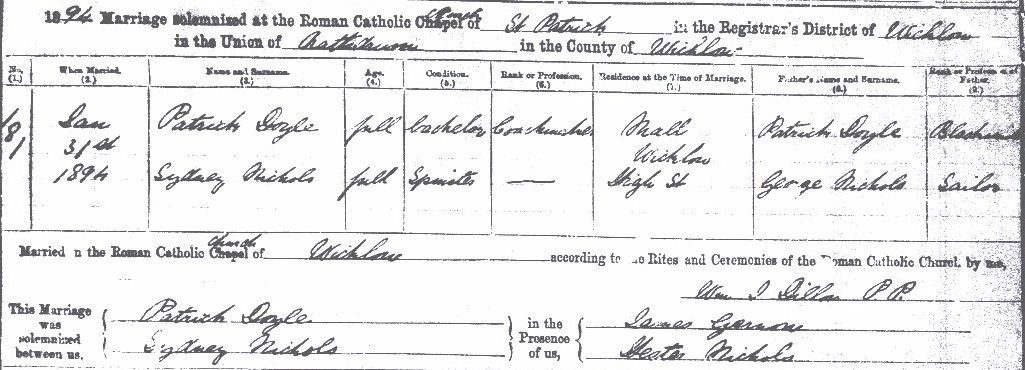 1894 Marriage solemnized at the Roman Catholic Chapel Church of St Patrick in the Registrar's District of Wicklow
in the Union of Rathdrum in the County of Wicklow
No. When Married. Name and Surname. Age. Condition. Rank or Profession. Residence at the Time of Marriage. Father's Name and Surname. Rank or Profession of Father.
(1.) (2.) (3.) (4.) (5.) (6.) (7.) (8.) (9.)
181 Jan Patrick Doyle full Bachelor Coachmaker Mall Patrick Doyle Blacksmith
31st Wicklow
1894 Sydney Nichols full Spinster — High St George Nichols Sailor
Married in the Roman Catholic Chapel Church of Wicklow according to the Rites and Ceremonies of the Roman Catholic Church by me,
Wm J Dillon P.P.
This Marriage was solemnized between us, Patrick Doyle
Sydney Nichols
in the Presence of us, James
Hester Nichols